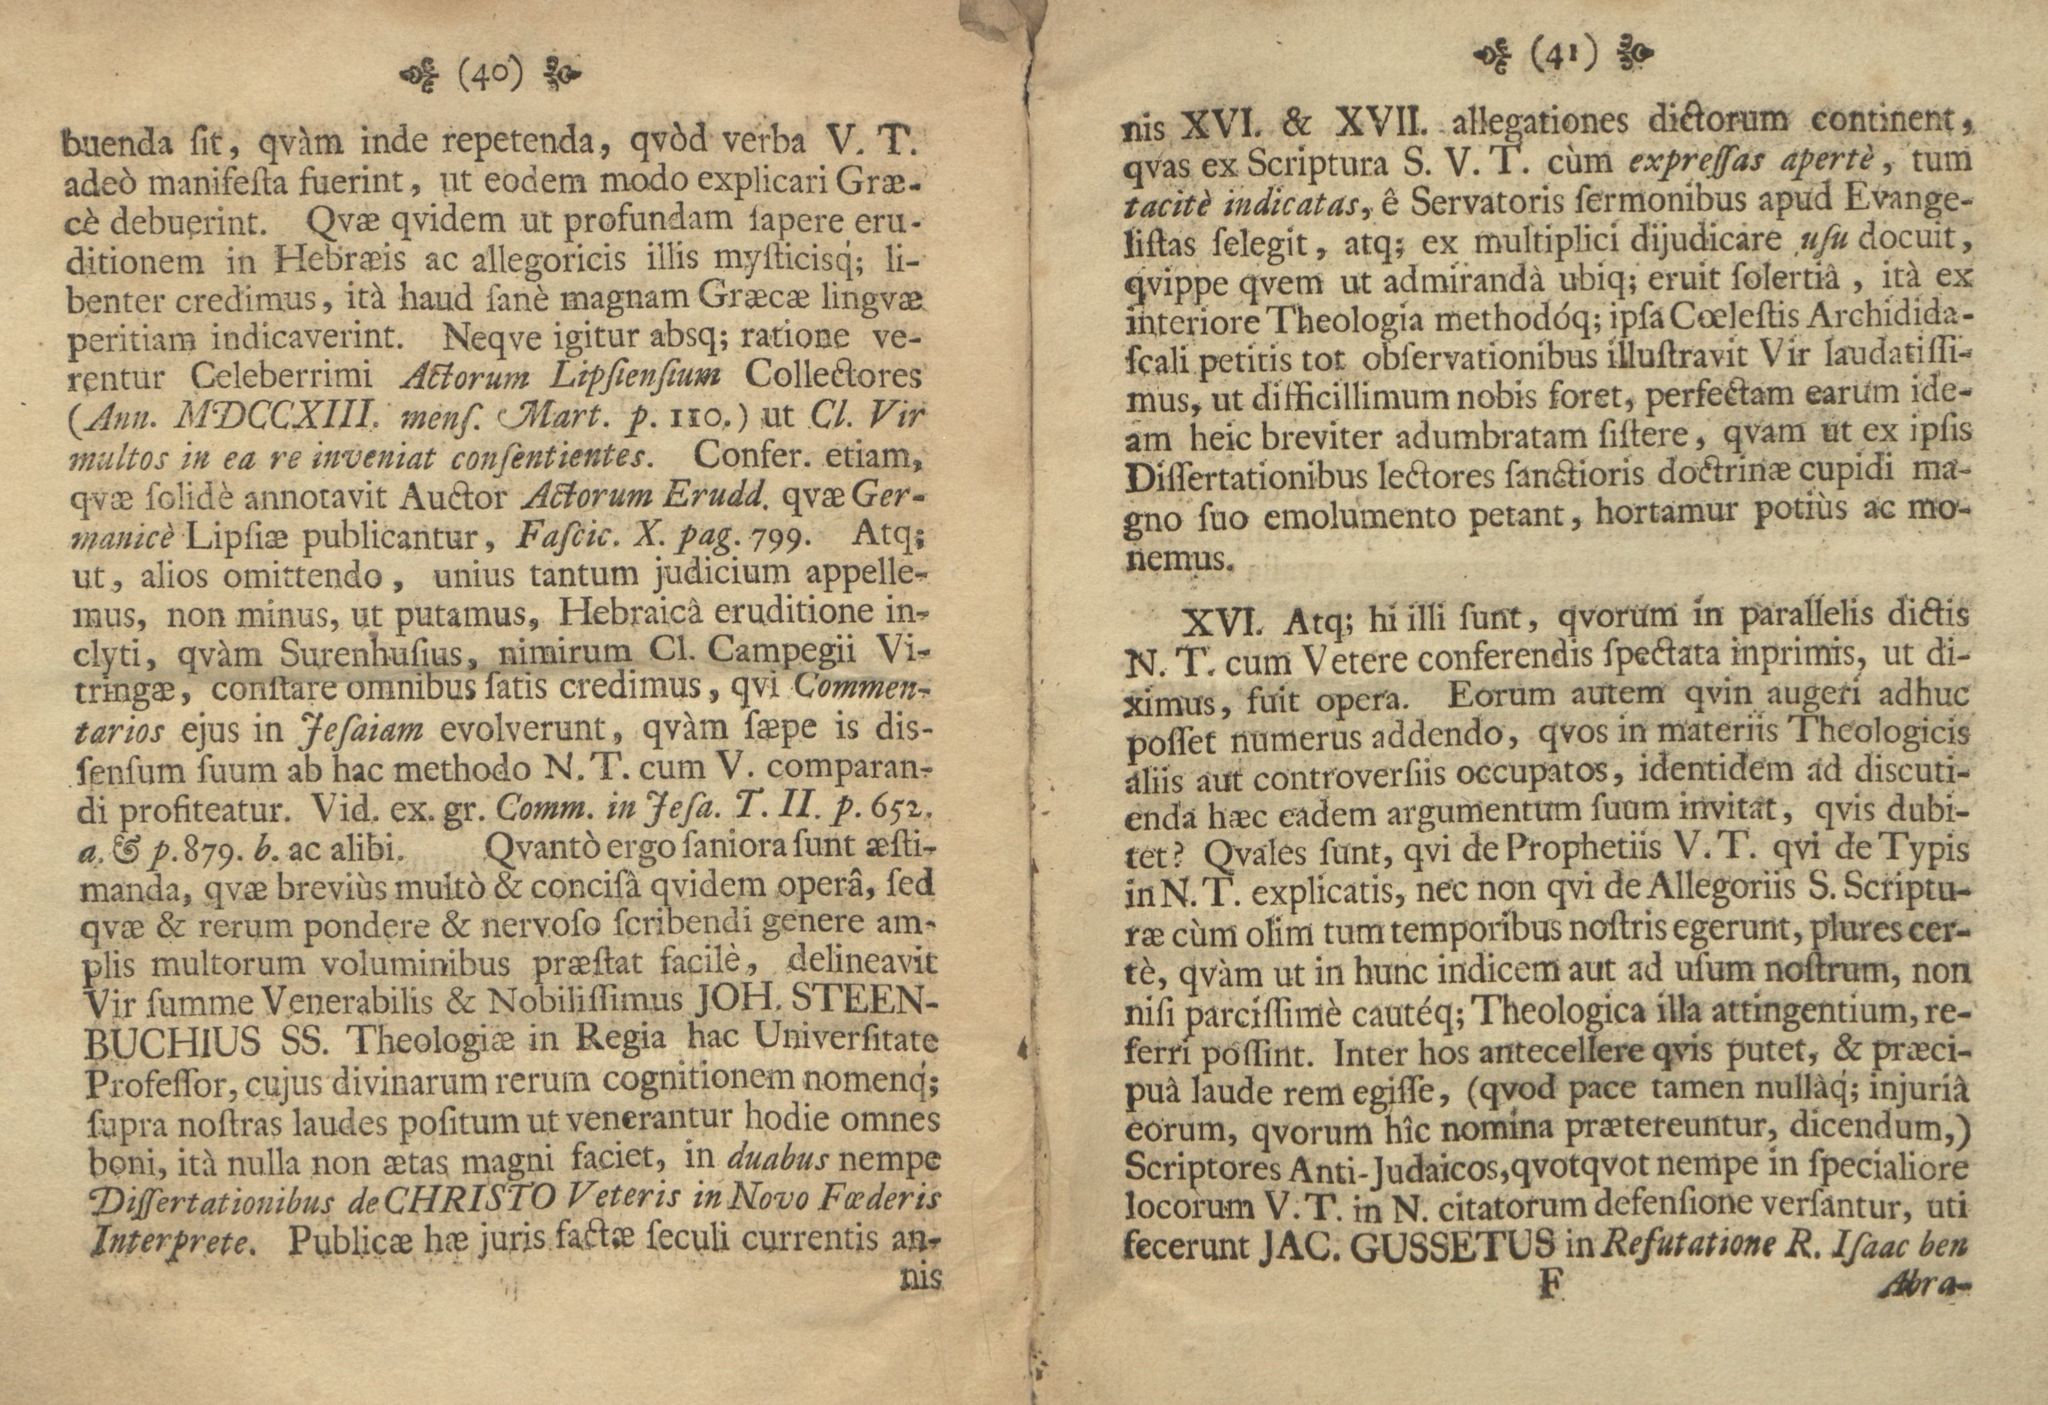 (40)
buenda ſit, qvàm inde repetenda, qvòd verba V. T.
adeò manifeſta fuerint, ut eodem modo explicari Græ-
cè debuerint. Qvæ qvidem ut profundam ſapere eru-
ditionem in Hebræis ac allegoricis illis myſticisq́; li-
benter credimus, ità haud ſanè magnam Græcæ lingvæ
peritiam indicaverint. Neqve igitur absq; ratione ve-
rentur Celeberrimi Actorum Lipſienſium Collectores
(Ann. MDCCXIII. menſ. Mart. p. 110.) ut Cl. Vir
multos in ea re inveniat conſentientes. Confer. etiam,
qvæ ſolidè annotavit Auctor Actorum Erudd. qvæ Ger-
manicè Lipſiæ publicantur, Faſcic. X. pag. 799. Atq;
ut, alios omittendo, unius tantum judicium appelle-
mus, non minus, ut putamus, Hebraicâ eruditione in-
clyti, qvàm Surenhuſius, nimirum Cl. Campegii Vi-
tringæ, conſtare omnibus ſatis credimus, qvi Commen-
tarios ejus in Jeſaiam evolverunt, qvàm ſæpe is dis-
ſenſum ſuum ab hac methodo N. T. cum V. comparan-
di profiteatur. Vid. ex. gr. Comm. in Jeſa. T. II. p. 652.
a. & p. 879. b. ac alibi. Qvantò ergo ſaniora ſunt æſti-
manda, qvæ breviùs multò & conciſà qvidem operâ, ſed
qvæ & rerum pondere & nervoſo ſcribendi genere am-
plis multorum voluminibus præſtat facilè, delineavit
Vir ſumme Venerabilis & Nobiliſſimus JOH. STEEN-
BUCHIUS SS. Theologiæ in Regia hac Univerſitate
Profeſſor, cujus divinarum rerum cognitionem nomenq́;
ſupra noſtras laudes poſitum ut venerantur hodie omnes
boni, ità nulla non ætas magni faciet, in duabus nempe
Diſſertationibus de CHRISTO Veteris in Novo Fœderis
Interprete. Publicæ hæ juris factæ ſeculi currentis an-
nis
(41)
nis XVI. & XVII. allegationes dictorum continent,
qvas ex Scriptura S. V. T. cùm expreſſas apertè, tum
tacitè indicatas, ê Servatoris ſermonibus apud Evange-
liſtas ſelegit, atq; ex multiplici dijudicare uſu docuit,
qvippe qvem ut admirandà ubiq; eruit ſolertiâ, ità ex
interiore Theologia methodóq; ipſa Cœleſtis Archidida-
ſcali petitis tot obſervationibus illuſtravit Vir laudatiſſi-
mus, ut difficillimum nobis foret, perfectam earum ide-
am heic breviter adumbratam ſiſtere, qvam ut ex ipſis
Diſſertationibus lectores ſanctioris doctrinæ cupidi ma-
gno ſuo emolumento petant, hortamur potiùs ac mo-
nemus.
XVI. Atq; hi illi ſunt, qvorum in parallelis dictis
N. T. cum Vetere conferendis ſpectata inprimis, ut di-
ximus, fuit opera. Eorum autem qvin augeri adhuc
poſſet numerus addendo, qvos in materiis Theologicis
aliis aut controverſiis occupatos, identidem ad discuti-
enda hæc eadem argumentum ſuum invitat, qvis dubi-
tet? Qvales ſunt, qvi de Prophetiis V. T. qvi de Typis
in N. T. explicatis, nec non qvi de Allegoriis S. Scriptu-
ræ cùm olim tum temporibus noſtris egerunt, plures cer-
tè, qvàm ut in hunc indicem aut ad uſum noſtrum, non
niſi parciſſimè cautéq; Theologica illa attingentium, re-
ferri poſſint. Inter hos antecellere qvis putet, & præci-
puâ laude rem egiſſe, (qvod pace tamen nullàq́; injuriâ
eorum, qvorum hîc nomina prætereuntur, dicendum,)
Scriptores Anti-Judaicos, qvotqvot nempe in ſpecialiore
locorum V. T. in N. citatorum defenſione verſantur, uti
fecerunt JAC. GUSSETUS in Refutatione R. Iſaac ben
F
Abra-